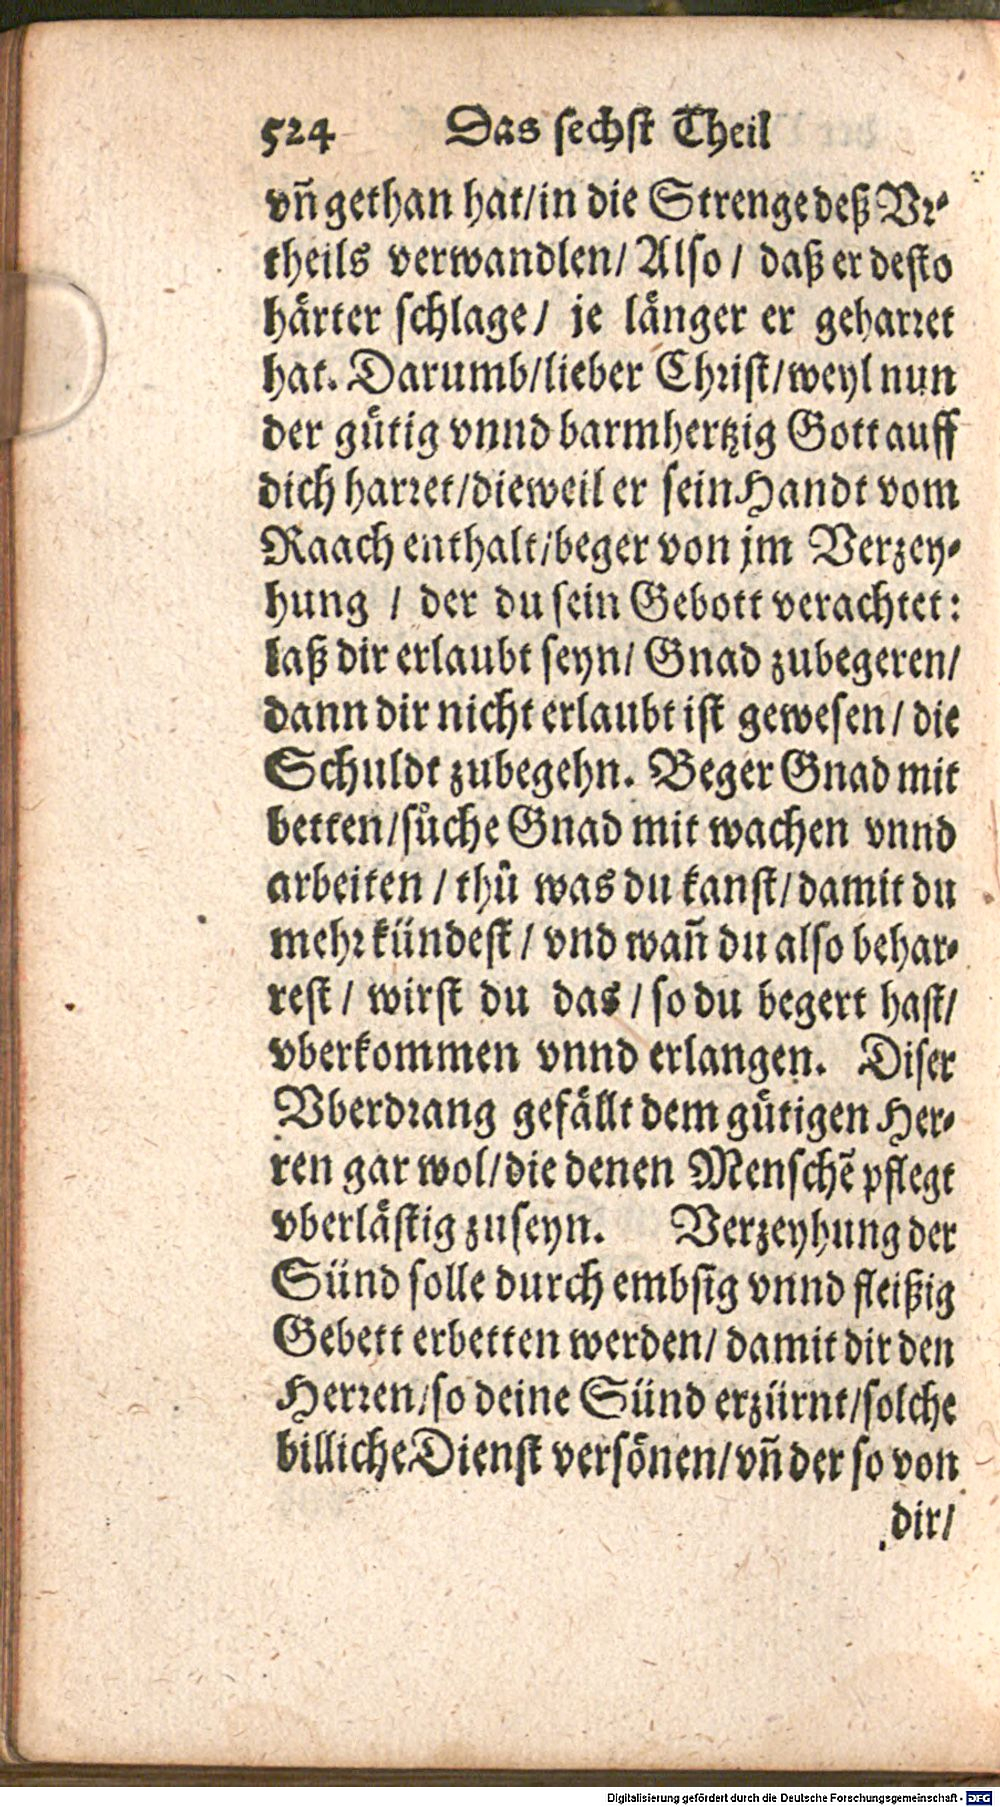 524 Das sechst Theil
vñ gethan hat/in die Strenge deß Vr-
theils verwandlen/ Also / daß er desto
härter schlage/ je länger er geharret
hat. Darumb/lieber Christ/weyl nun
der gütig vnnd barmhertzig Gott auff
dich harret/dieweil er sein Handt vom
Raach enthalt/beger von jm Verzey-
hung / der du sein Gebott verachtet:
laß dir erlaubt seyn/ Gnad zubegeren/
dann dir nicht erlaubt ist gewesen/ die
Schuldt zubegehn. Beger Gnad mit
betten/sůche Gnad mit wachen vnnd
arbeiten / thů was du kanst/damit du
mehr kündest / vnd wañ du also behar-
rest / wirst du das / so du begert hast/
vberkommen vnnd erlangen. Diser
Vberdrang gefällt dem gütigen Her-
ren gar wol/die denen Menschẽ pflegt
vberlästig zuseyn. Verzeyhung der
Sünd solle durch embsig vnnd fleißig
Gebett erbetten werden/ damit dir den
Herren/so deine Sünd erzürnt/solche
billiche Dienst versönen/vñ der so von
dir/
Digitalisierung gefördert durch die Deutsche Forschungsgemeinschaft - DFG